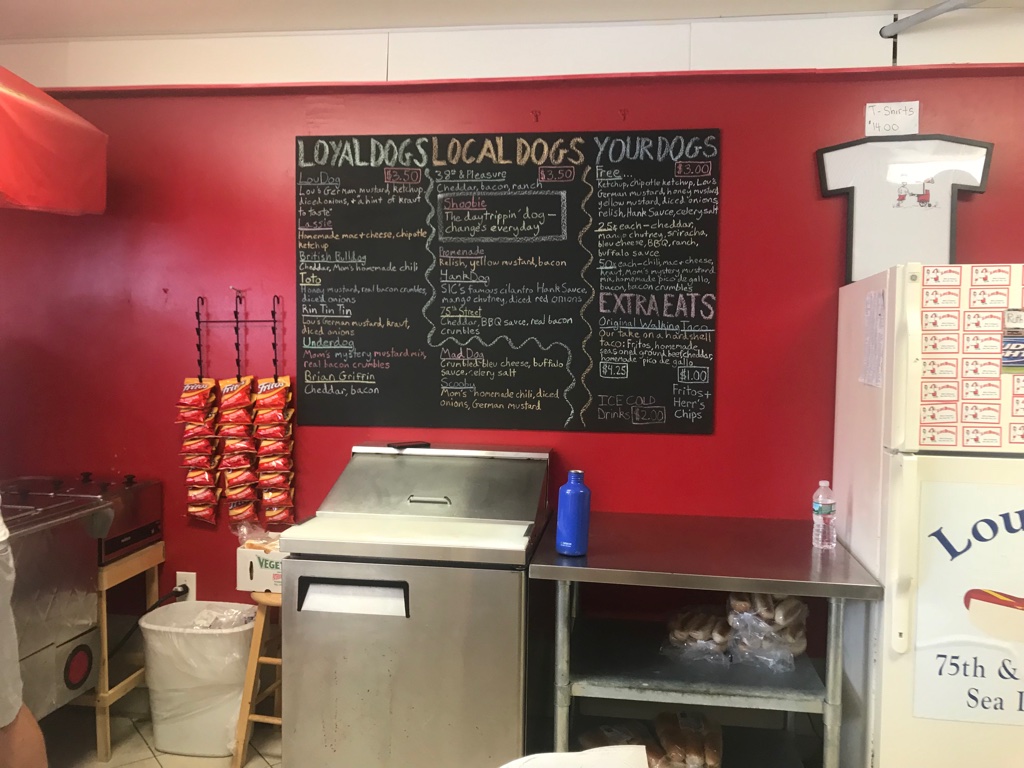 LOYAL DOGS
$3.50
Lou Dog
Lou's German mustard, ketchup,
diced onions, + a hint of kraut
"to taste"
Lassie
Homemade mac + cheese, chipotle
ketchup
British Bulldog
Cheddar, Mom's homemade chili
Toto
Honey mustard, real bacon crumbles,
diced onions
Rin Tin Tin
Lou's German mustard, kraut,
diced onions
Underdog
Mom's mystery mustard mix,
real bacon crumbles
Brian Griffin
Cheddar, bacon
LOCAL DOGS
$3.50
& Pleasure
Cheddar, bacon, ranch
Shoobie
The daytrippin' dog—
changes everyday
Promenade
Relish, yellow mustard, bacon
Hank Dog
SIC's famous cilantro Hank Sauce
mango chutney, diced red onions
75th Street
Cheddar, BBQ sauce, real bacon
crumbles
Mad Dog
Crumbled bleu cheese, buffalo
sauce, celery salt
Scooby
Mom's homemade chili, diced
onions, German mustard
YOUR DOGS
$3.00
Free...
Ketchup, chipotle ketchup, Lou's
German mustard, honey mustard,
yellow mustard, diced onions,
relish, Hank Sauce, celery salt
25¢ each - cheddar,
mango chutney, sriracha,
bleu cheese, BBQ, ranch,
buffalo sauce
50¢ each - chili, mac + cheese,
kraut, Mom's mystery mustard
mix, homemade pico de gallo,
bacon, bacon crumbles
EXTRA EATS
Original Walking Taco
Our take on a hard shell
taco: Fritos, homemade
seasoned ground beef, cheddar,
homemade pico de gallo
$4.25
$1.00
Fritos +
Herr's
Chips
ICE COLD
Drinks $2.00
T-Shirts
$14.00
Fritos
VEGE
Lou
75th &
Sea I